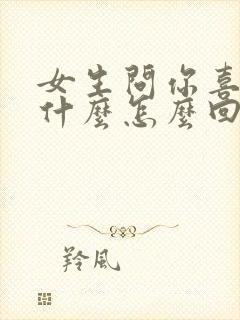 女生問你喜
什麼怎麼回
羚風